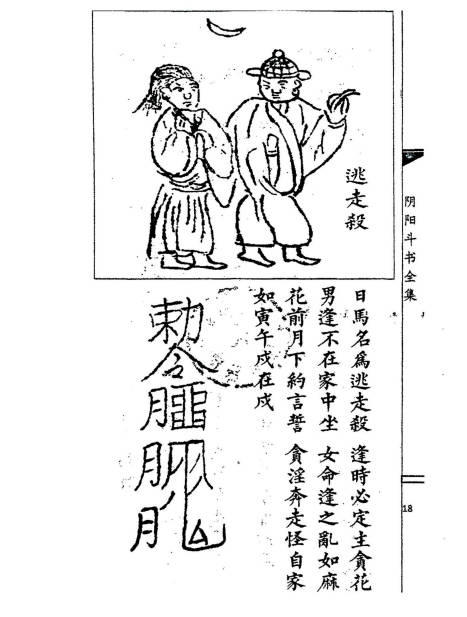 阴阳斗书全集
18
逃走殺
日馬名為逃走殺 逢時必定主貪花
男逢不在家中坐 女命逢之亂如麻
花前月下約言誓 貪淫奔走怪自家
如寅午戍在戍
勅令